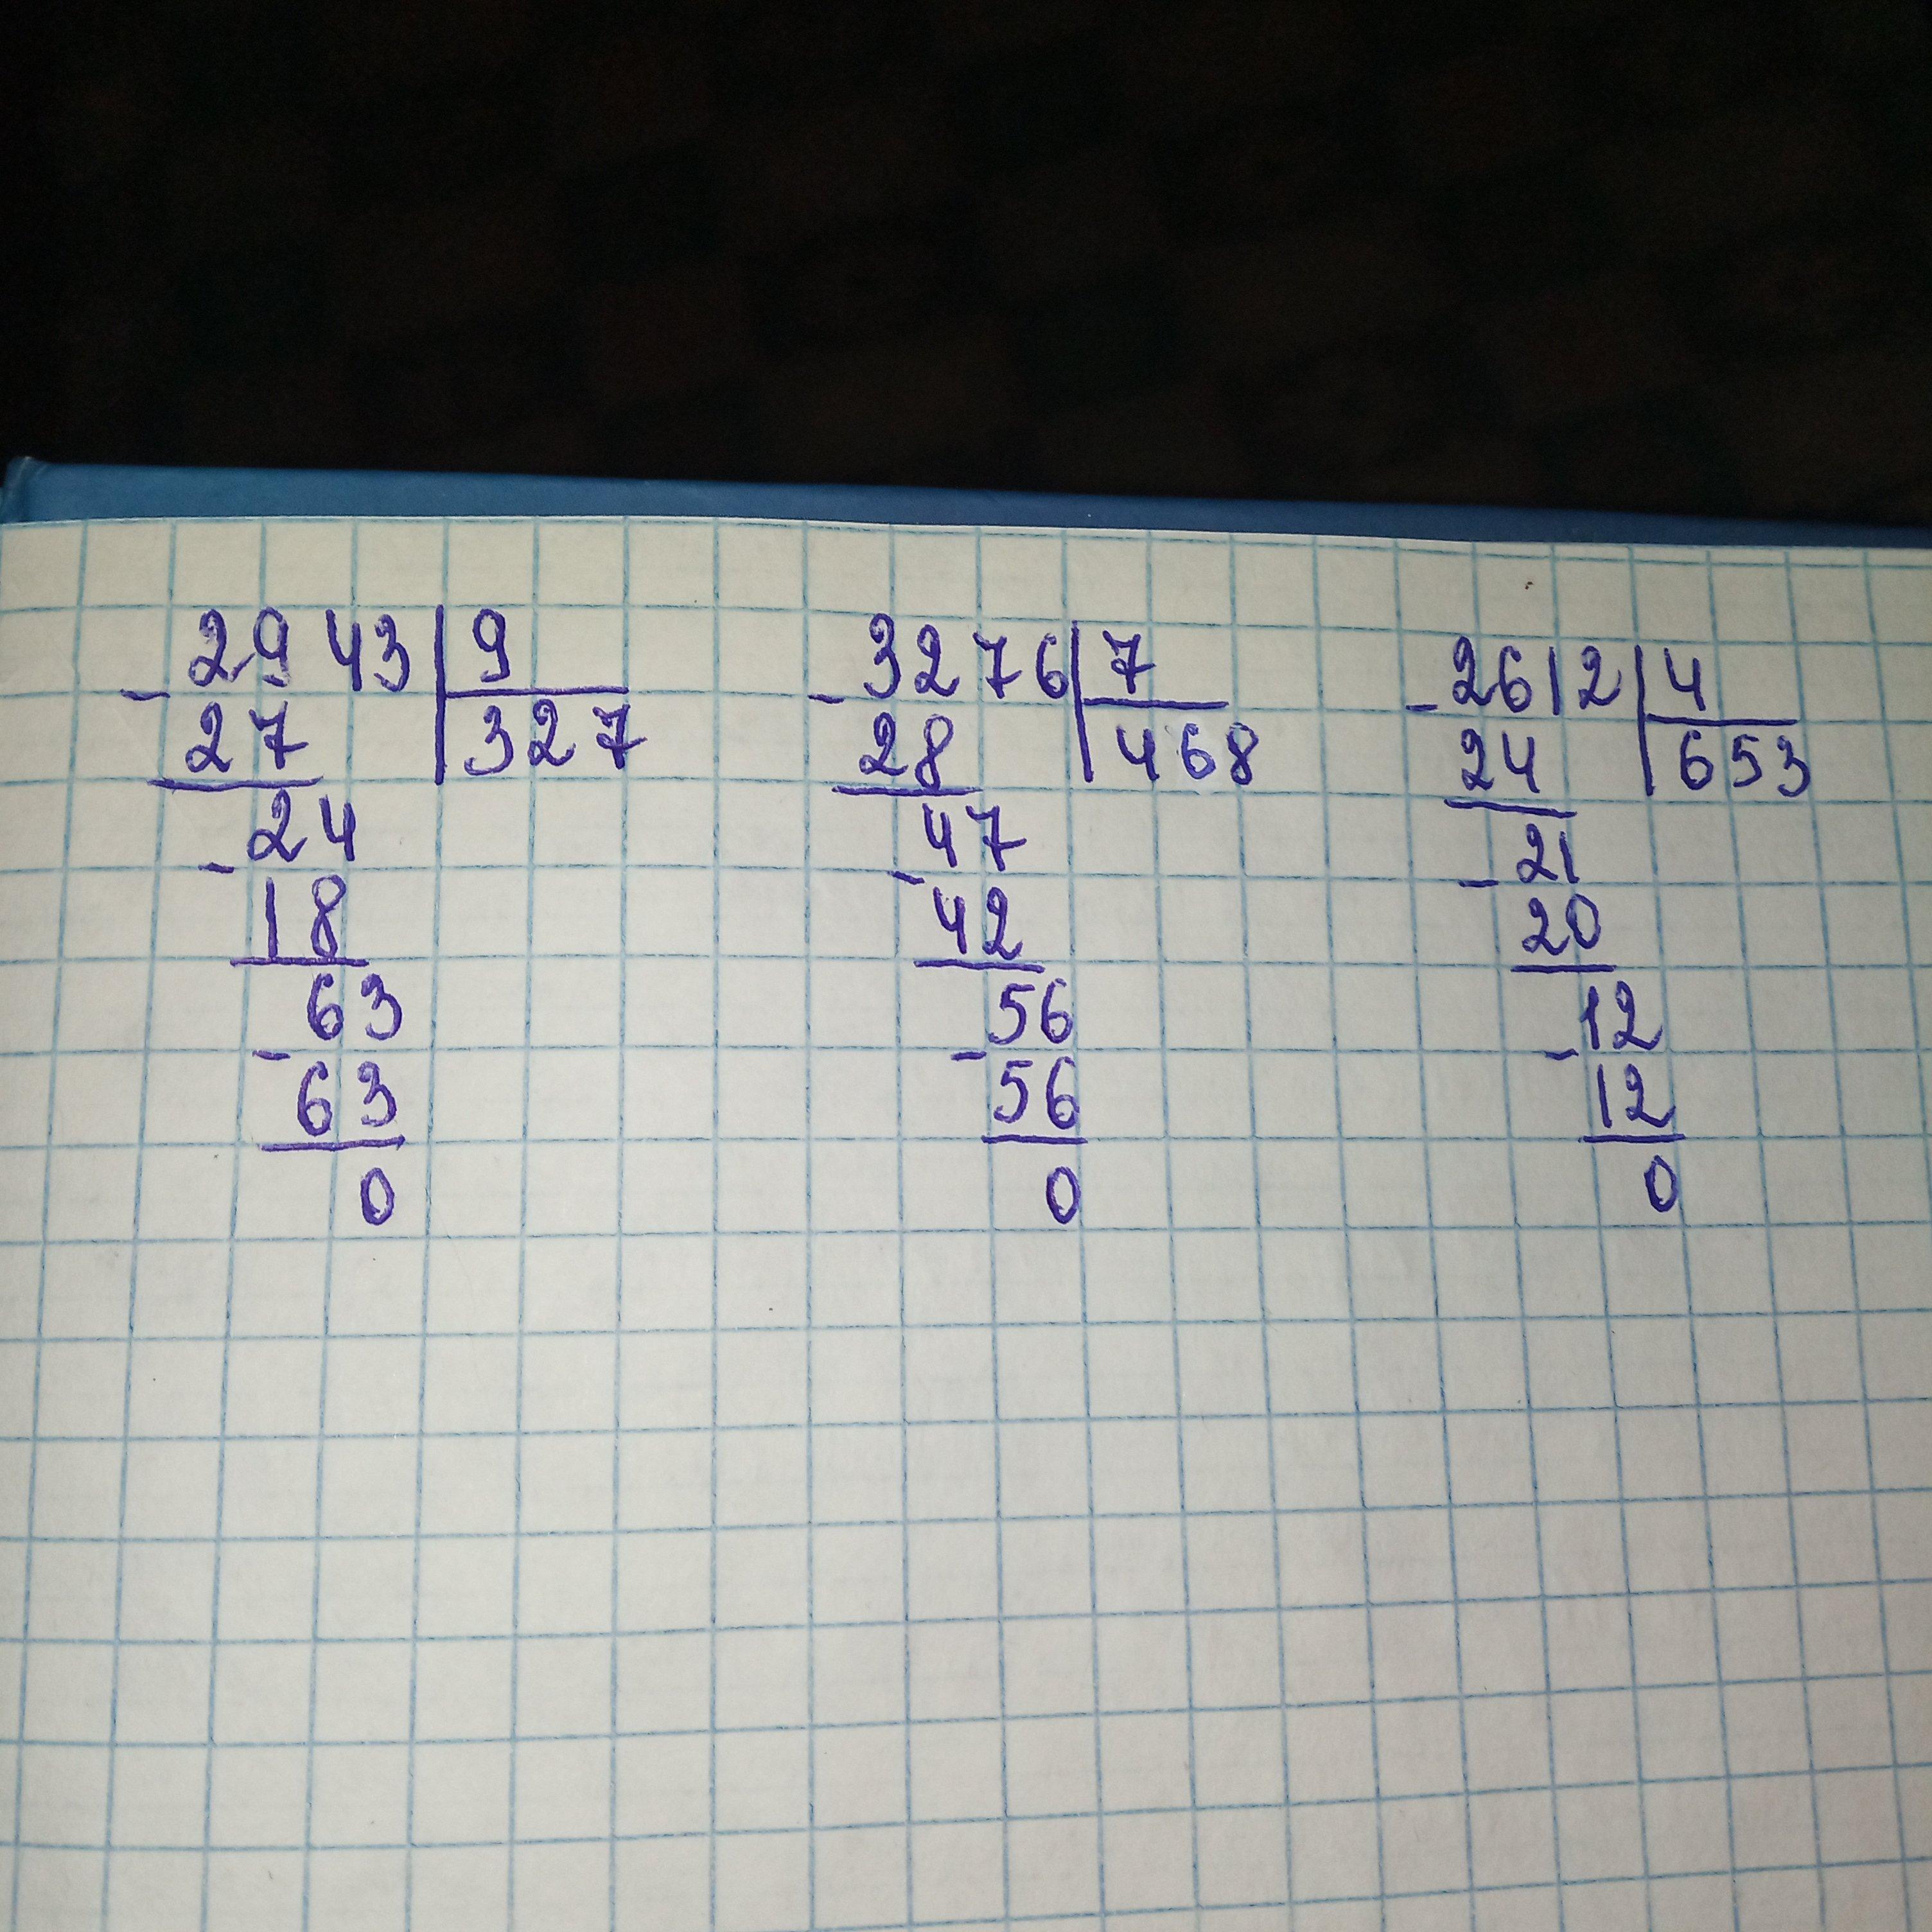 2943 9
- 27 327
24
- 18
63
- 63
0
3276 7
- 28 468
47
- 42
56
- 56
0
2612 4
- 24 653
21
- 20
12
- 12
0